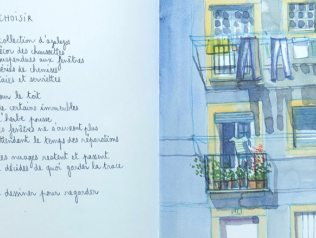 CHOISIR
collection d'azulejos
des chaussettes
suspendues aux fenêtres
de chemises
et serviettes
sur le toit
de certains immeubles
l'herbe pousse
les fenêtres ne s'ouvrent plus
attendent le temps des réparations
les nuages restent et passent
décides de quoi garder la trace
dessiner pour regarder